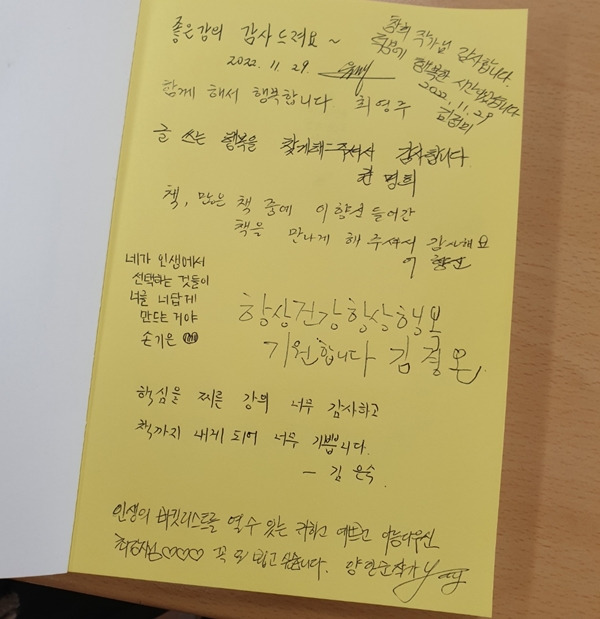 좋은강의 감사드려요~
2022. 11. 29.
작가님 감사합니다.
행복한 시간이었습니다
2022. 11. 29
함께 해서 행복합니다 최영주
글 쓰는 행복을 찾게해주셔서 감사합니다
명희
책, 많은 책 중에 이향선 들어간
책을 만나게 해 주셔서 감사해요
이향선
네가 인생에서
선택하는 것들이
너를 너답게
만드는 거야
손기은
항상건강항상행복
기원합니다
핵심을 찌른 강의 너무 감사하고
책까지 내게 되어 너무 기쁩니다.
- 김은숙
인생의 버킷리스트를 열 수 있는 귀하고 예쁘고 아름다우신
♡♡♡ 꼭 또 뵙고 싶습니다.